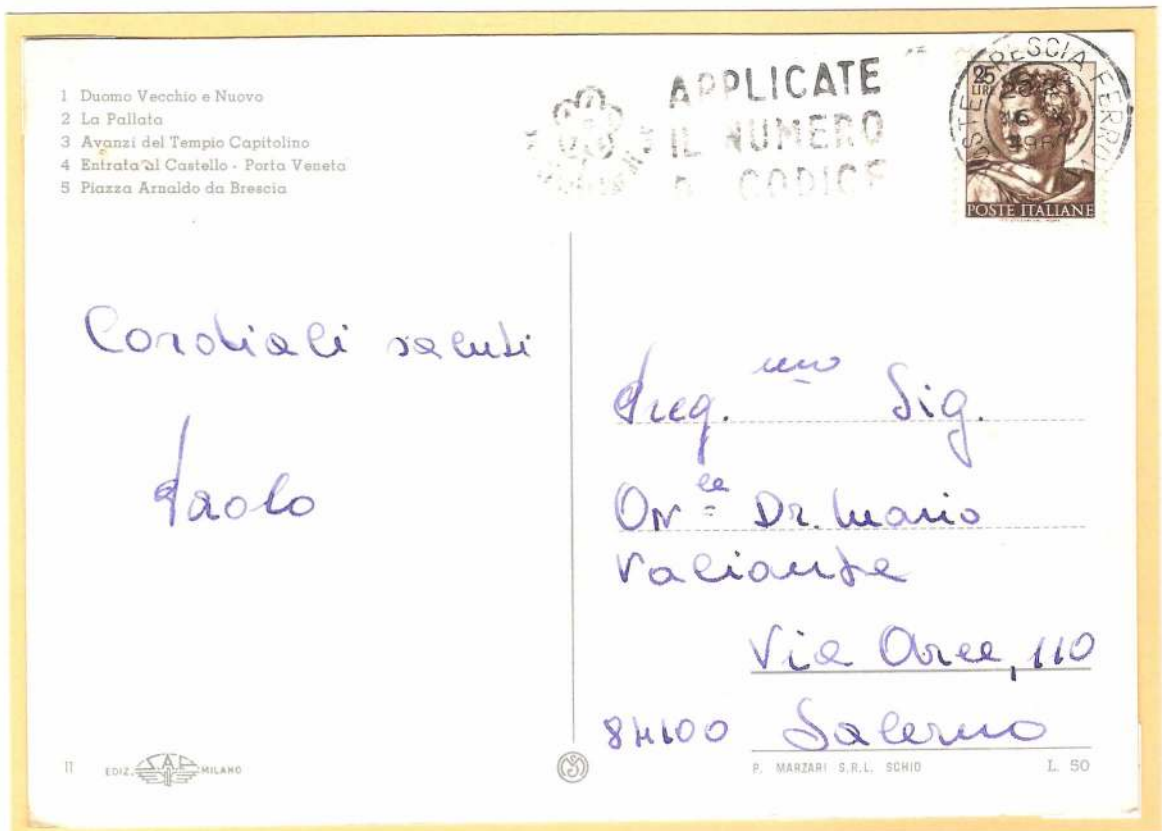 1 Duomo Vecchio e Nuovo
2 La Pallata
3 Avanzi del Tempio Capitolino
4 Entrata al Castello - Porta Veneta
5 Piazza Arnaldo da Brescia
APPLICATE
IL NUMERO
CODICE
25
LIRE
POSTE ITALIANE
BRESCIA FERR
Cordiali saluti
Paolo
Preg.mo Sig.
On.le Dr. Mario
Valiante
Via Arce, 110
84100 Salerno
11 EDIZ. S.A.F. MILANO
P. MARZARI S.R.L. SCHIO L. 50